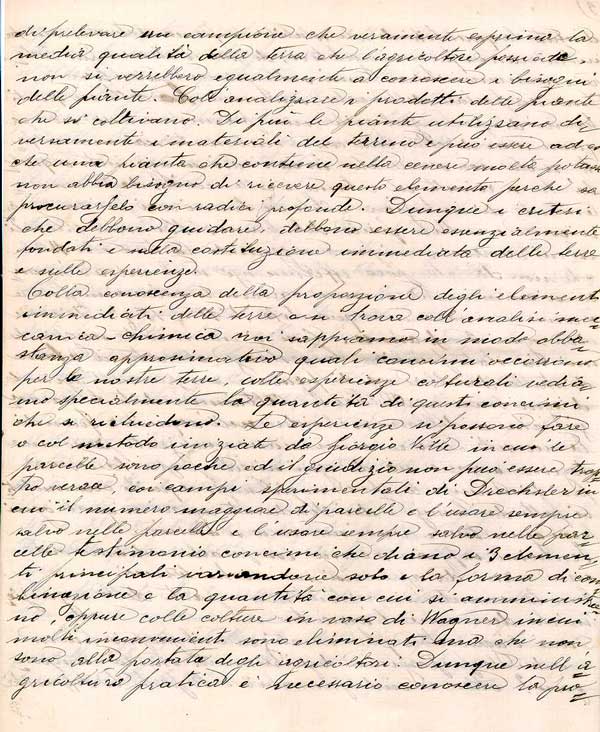 di prelevare un campione che veramente esprima la
media qualità della terra che l'agricoltore possiede,
non si verrebbero egualmente a conoscere i bisogni
delle piante. Coll'analizzare i prodotti delle piante
che si coltivano. Di più le piante utilizzano di=
versamente i materiali del terreno e può essere ad es
che una pianta che contiene nella cenere molta potassa
non abbia bisogno di ricevere questo elemento perché sa
procurarselo con radici profonde. Dunque i criteri
che debbono guidare, debbono essere essenzialmente
fondati e sulla costituzione immediata delle terre
e sulle esperienze
Colla conoscenza della proporzione degli elementi
immediati delle terre e si trova coll'analisi mec
canica-chimica noi sappiamo in modo abba=
stanza approssimativo quali concimi occorrono
per le nostre terre, colle esperienze colturali vedia=
mo specialmente la quantità di questi concimi
che si richiedono. Le esperienze si possono fare
o col metodo iniziato da Giorgio Ville in cui le
parcelle sono poche ed il giudizio non può essere trop=
po verace, coi campi sperimentali di Drechsler in
cui il numero maggiore di parcelle e l'usare sempre
salvo nelle parcelle e l'usare sempre salvo nelle par
celle testimonio concimi che diano i 3 elemen=
ti principali variandone solo e la forma di com
binazione e la quantità con cui si amministra=
no, oppure colle colture in vaso di Wagner in cui
molti inconvenienti sono eliminati ma che non
sono alla portata degli agricoltori. Dunque nell'a=
gricoltura pratica è necessario conoscere la pro=